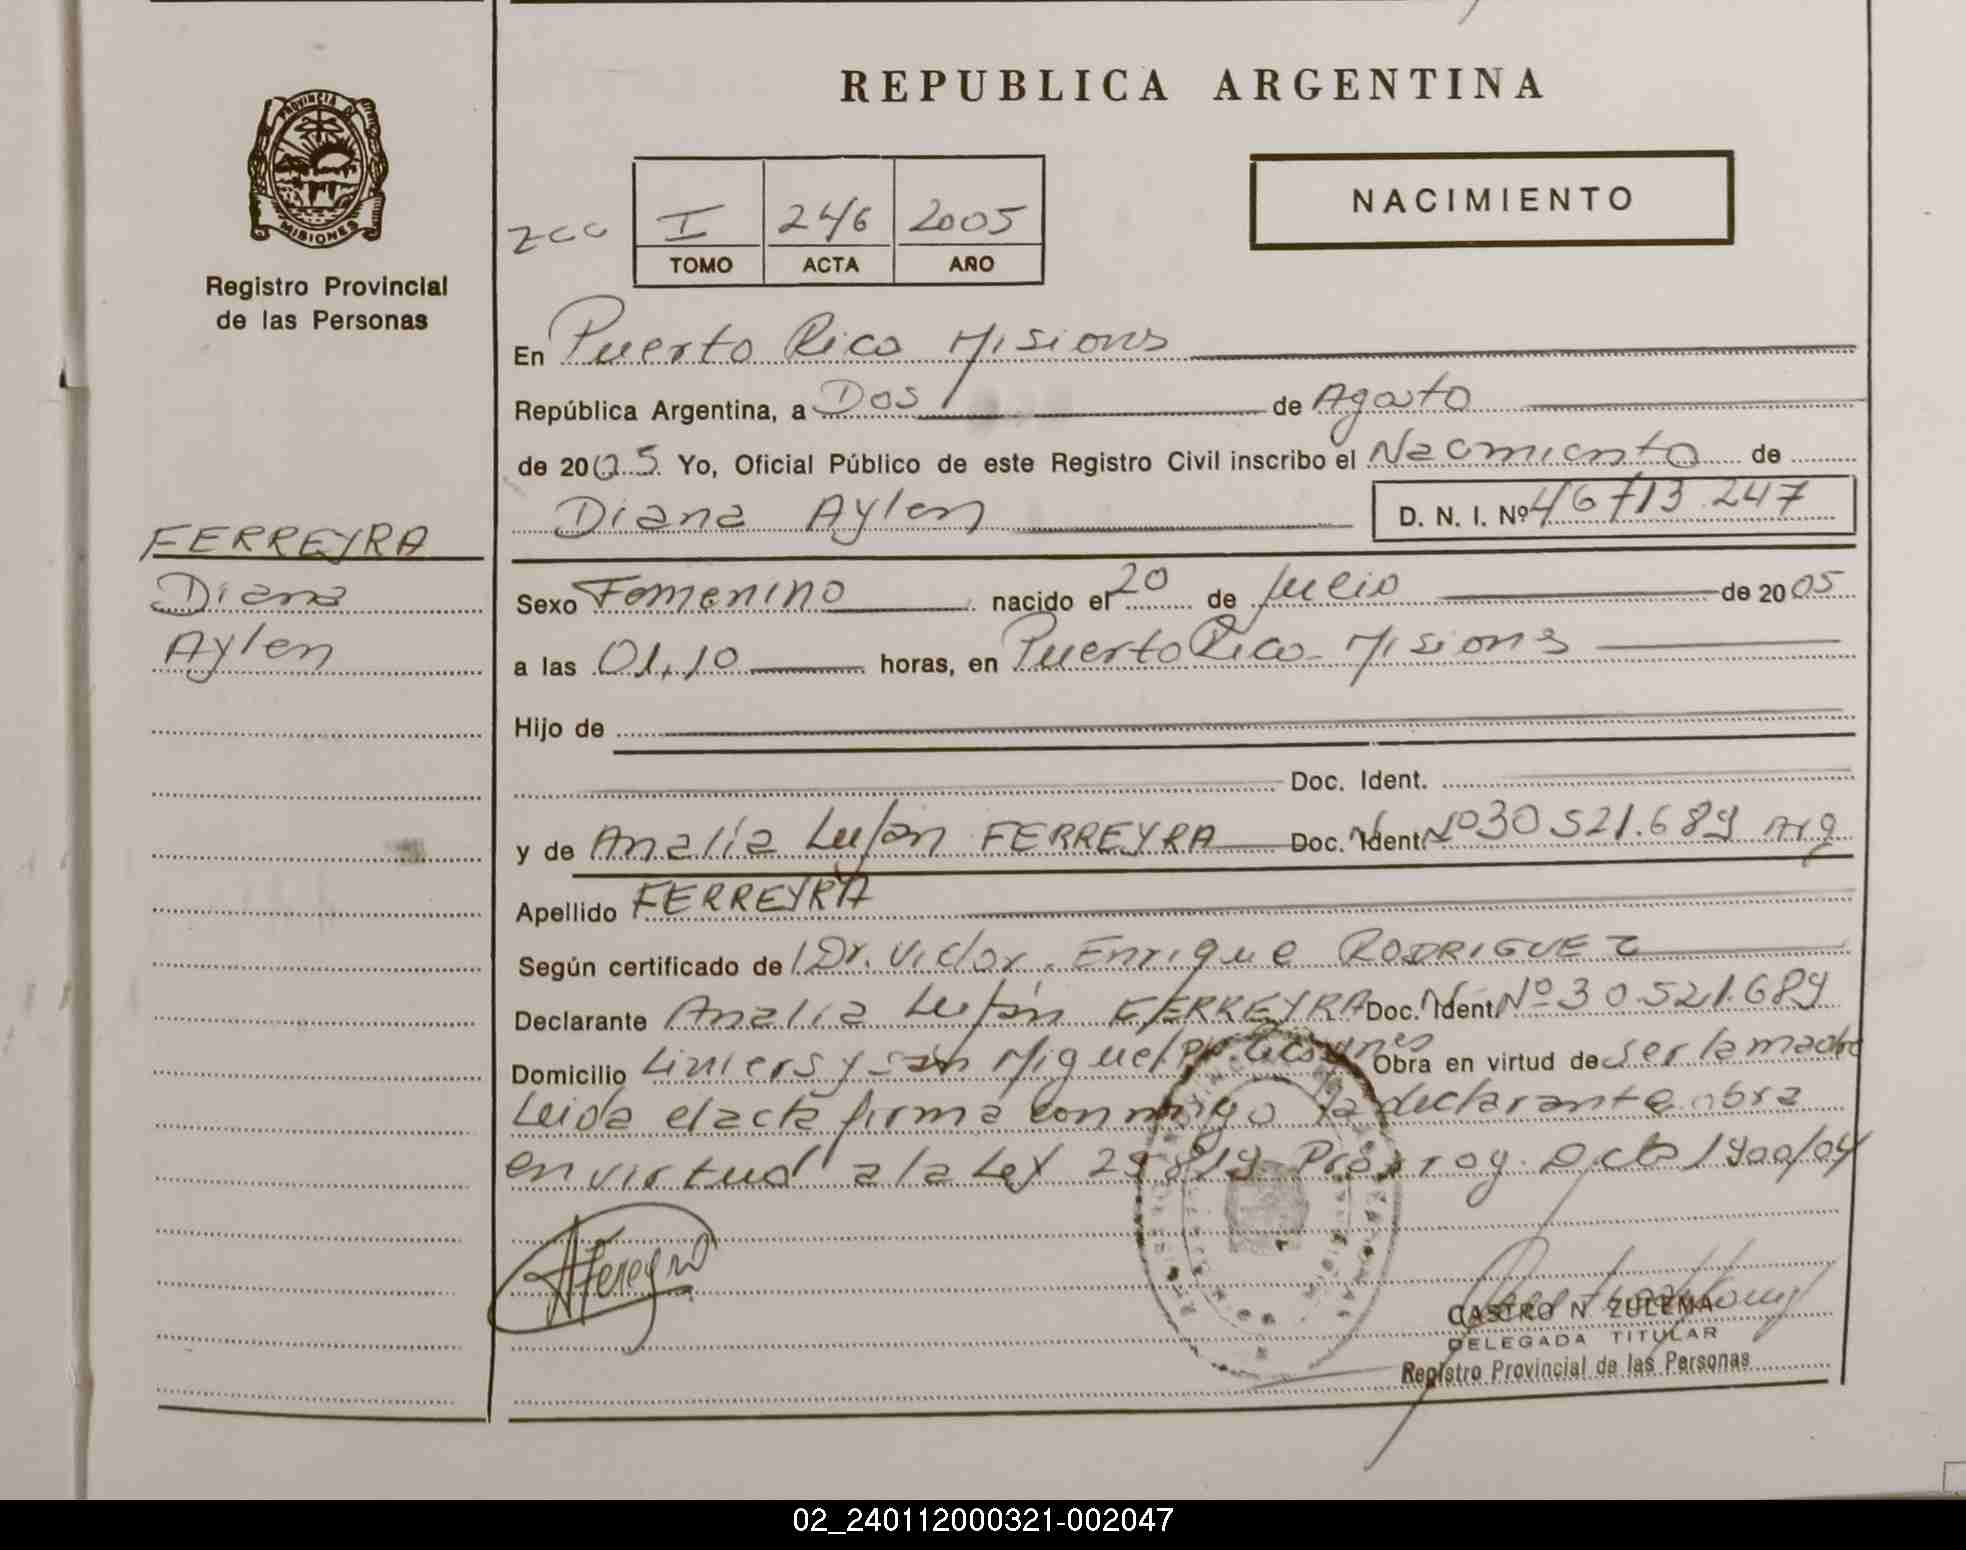 REPUBLICA ARGENTINA
PROVINCIA DE
MISIONES
Registro Provincial
de las Personas
NACIMIENTO
I 246 2005
TOMO ACTA AÑO
En Puerto Rico Misiones
República Argentina, a Dos de Agosto
de 2005. Yo, Oficial Público de este Registro Civil inscribo el Nacimiento de
Diana Aylen D. N. I. Nº 46713.247
FERREYRA
Diana
Aylen
Sexo Femenino nacido el 20 de Julio de 2005
a las 01,10 horas, en Puerto Rico - Misiones
Hijo de
Doc. Ident.
y de Analía Luján FERREYRA Doc. Ident. Nº 30.521.689 Arg
Apellido FERREYRA
Según certificado de Dr. Victor Enrique RODRIGUEZ
Declarante Analia Luján FERREYRA Doc. Ident. Nº 30.521.689
Domicilio Liniers y San Miguel Obra en virtud de ser la madre
Leida el acta firma conmigo la declarante obra
en virtud a la Ley 25.819 Prorrog. Dcto 1900/04
CASTRO N. ZULEMA
DELEGADA TITULAR
Registro Provincial de las Personas
02_240112000321-002047